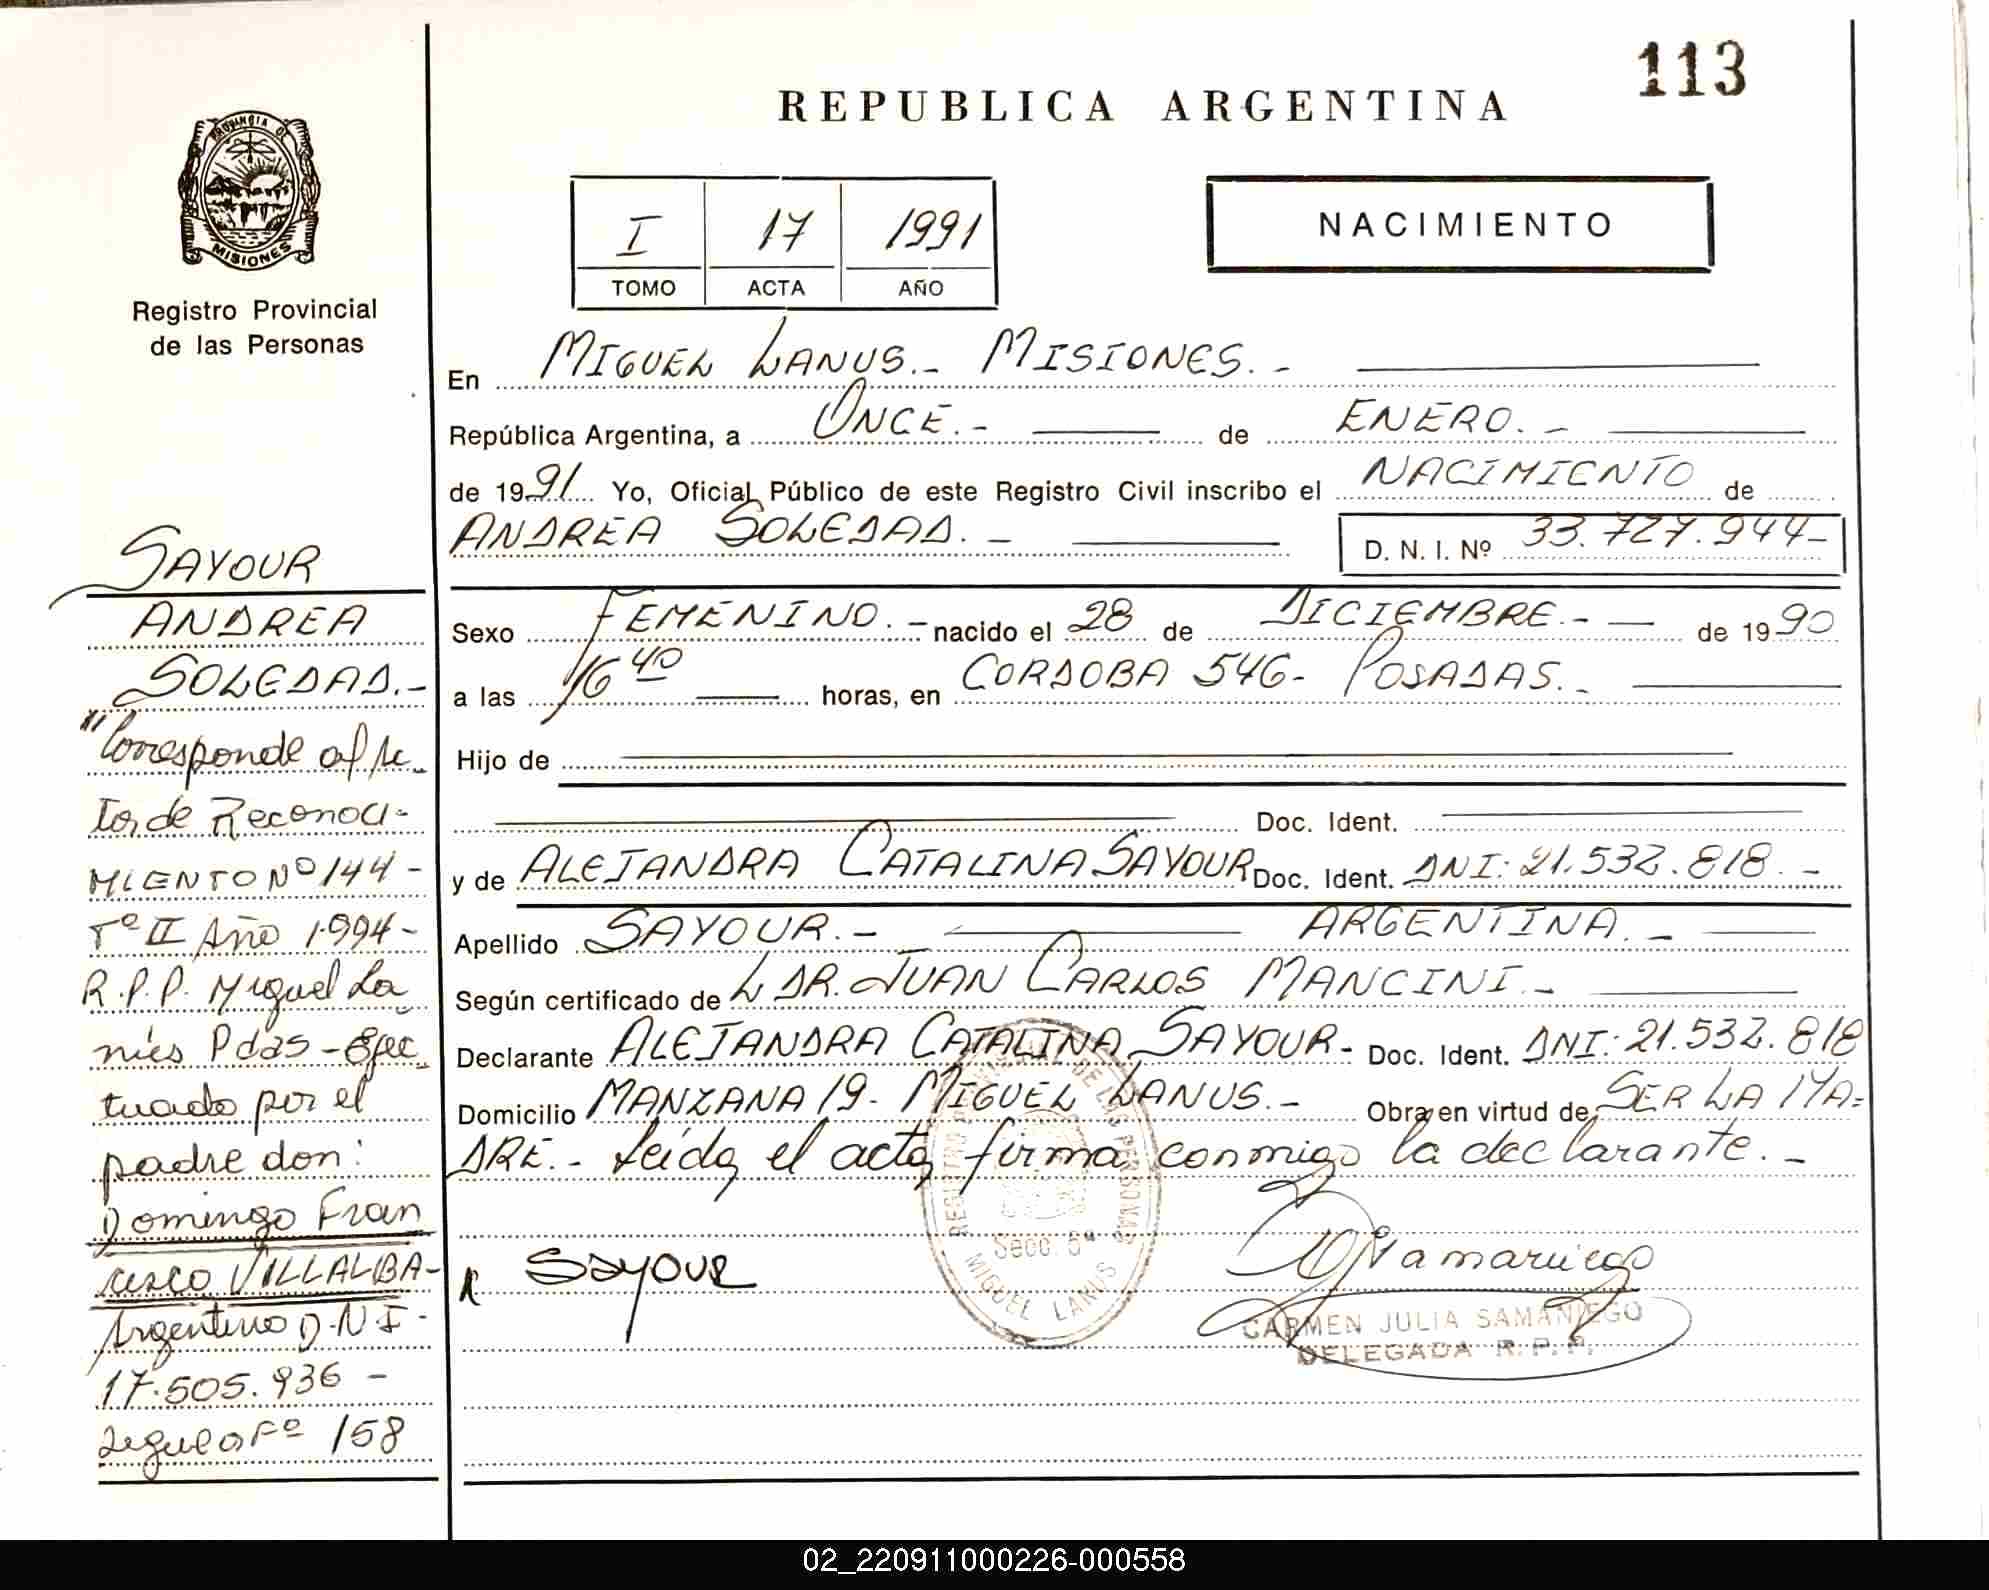 113
REPUBLICA ARGENTINA
PROVINCIA DE
MISIONES
Registro Provincial
de las Personas
I 17 1991
TOMO ACTA AÑO
NACIMIENTO
En MIGUEL LANUS.- MISIONES.-
República Argentina, a ONCE.- de ENERO.-
de 1991 Yo, Oficial Público de este Registro Civil inscribo el NACIMIENTO de
ANDREA SOLEDAD.- D. N. I. Nº 33.727.944-
Sexo FEMENINO.- nacido el 28 de DICIEMBRE.- de 1990
a las 16 40 horas, en CORDOBA 546- POSADAS.-
Hijo de
Doc. Ident.
y de ALEJANDRA CATALINA SAYOUR Doc. Ident. DNI: 21.532.818.-
Apellido SAYOUR.- ARGENTINA.-
Según certificado de L DR. JUAN CARLOS MANCINI.-
Declarante ALEJANDRA CATALINA SAYOUR- Doc. Ident. DNI: 21.532.818
Domicilio MANZANA 19- MIGUEL LANUS.- Obra en virtud de SER LA MA=
DRE.- Leída el acta firma conmigo la declarante.-
SAYOUR
ANDREA
SOLEDAD.-
"Corresponde al Ac-
ta de Reconoci-
MIENTO Nº 144-
Tº II Año 1994-
R.P.P. Miguel La
nús Pdas-Efec-
tuado por el
padre don:
Domingo Fran
cisco VILLALBA-
Argentino D.N.I-
17.505.936-
Fº 158
Sayour
REGISTRO DE LAS PERSONAS
Secc. 5ª
MIGUEL LANUS
CARMEN JULIA SAMANIEGO
DELEGADA R.P.P.
02_220911000226-000558